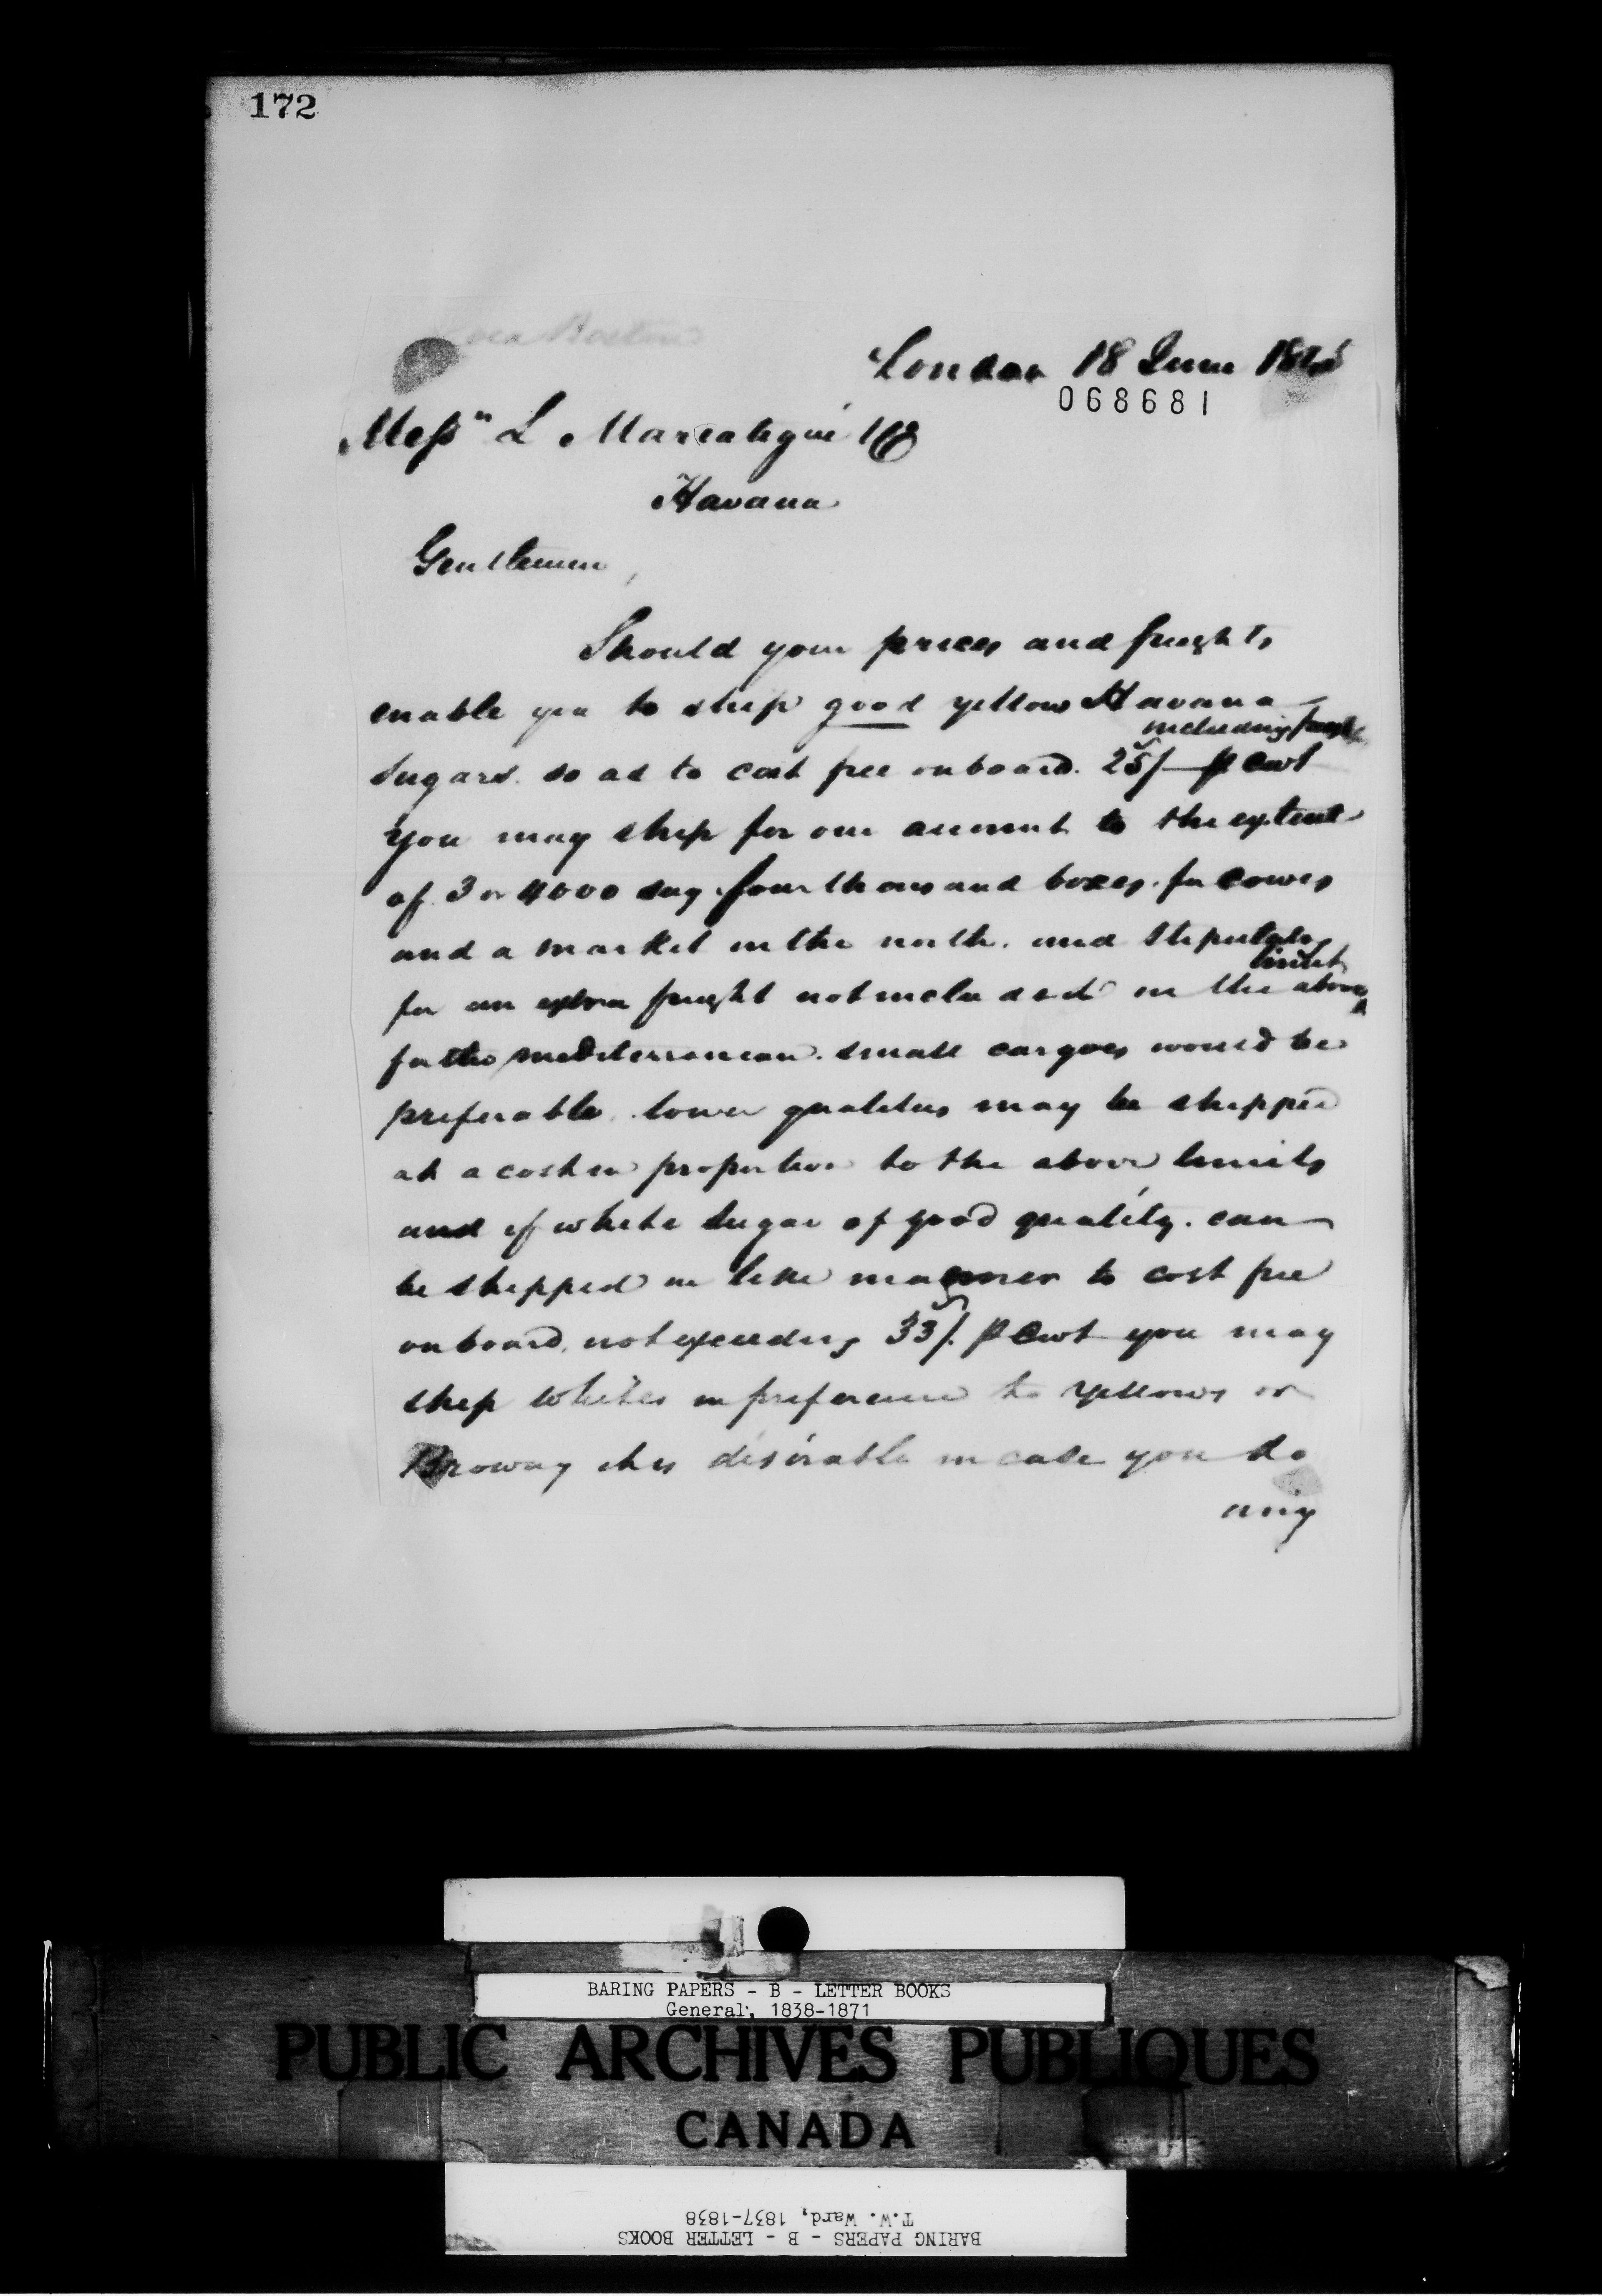 172
via Boston
London 18 June 184
068681
Messrs L Mariategui & Co
Havana
Gentlemen,
Should your prices and freights
enable you to ship good yellow Havana
including freight
Sugars so as to cost free onboard. 25/- p Cwt
you may ship for our account to the extent
of 3 or 4000 say four thousand boxes. for Cowes
and a market in the north. and stipulate
limits
for an extra freight not included in the above
for the mediterranean. small cargoes would be
preferable. lower qualities may be shipped
at a cost in proportion to the above limits
and if white Sugar of good quality. can
be shipped in like manner to cost free
on board. not exceeding 33/. p Cwt you may
ship whites in preference to yellows or
Browns, it is desirable in case you do
any
BARING PAPERS - B - LETTER BOOKS
General, 1838-1871
PUBLIC ARCHIVES PUBLIQUES
CANADA
BARING PAPERS - B - LETTER BOOKS
T.W. Ward, 1837-1838